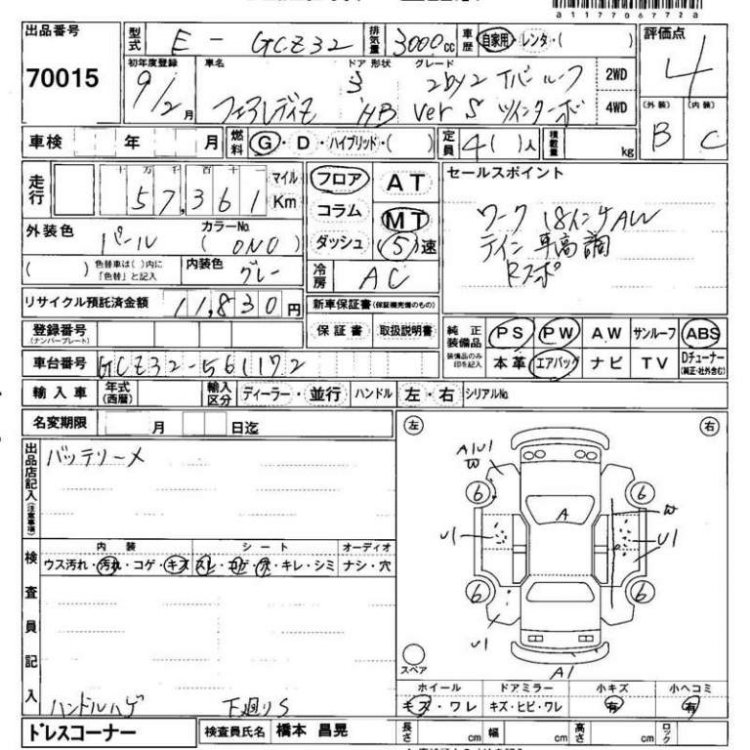 a117706772a
出品番号 型式 E - GCZ32 排気量 3000cc 車歴 自家用・レンタ・( ) 評価点
70015 初年度登録 車名 ドア 形状 グレード 4
9/2月 フェアレディZ 3 HB 2by2 Tバールーフ 2WD
Ver S ツインターボ 4WD (外装) (内装)
車検 年 月 燃料 G・D・ハイブリッド・( ) 定員 4( )人 積載量 kg B C
走行 十万千百十一 マイル フロア AT セールスポイント
57,361 Km コラム MT ワーク 18インチAW
外装色 カラーNo. ダッシュ (5)速 テイン車高調
パール (ONO) Rスポ
( ) 色替車は( )内に「色替」と記入 内装色 グレー 冷房 AC
リサイクル預託済金額 11,830円 新車保証書(保証継続他のもの)
登録番号 (ナンバープレート) 保証書 取扱説明書 純正装備品 PS PW AW サンルーフ ABS
車台番号 GCZ32-561172 装備品のみ印を記入 本革 エアバッグ ナビ TV Dチューナー(純正・社外含む)
輸入車 年式(西暦) 輸入区分 ディーラー・並行 ハンドル 左・右 シリアルNo.
名変期限 月 日迄 左 右
出品店記入(注意事項) バッテリーメ
A1U1
W
6 6
A W
U1 U1
検査員記入 内装 シート オーディオ
ウス汚れ・汚れ・コゲ・キズ スレ・コゲ・穴・キレ・シミ ナシ・穴
6 6
U1
スペア A1
ハンドルハゲ 下廻りS
ホイール ドアミラー 小キズ 小ヘコミ
キズ・ワレ キズ・ヒビ・ワレ 有 有
ドレスコーナー 検査員氏名 橋本 昌晃 長さ cm 幅 cm 高さ cm ロック